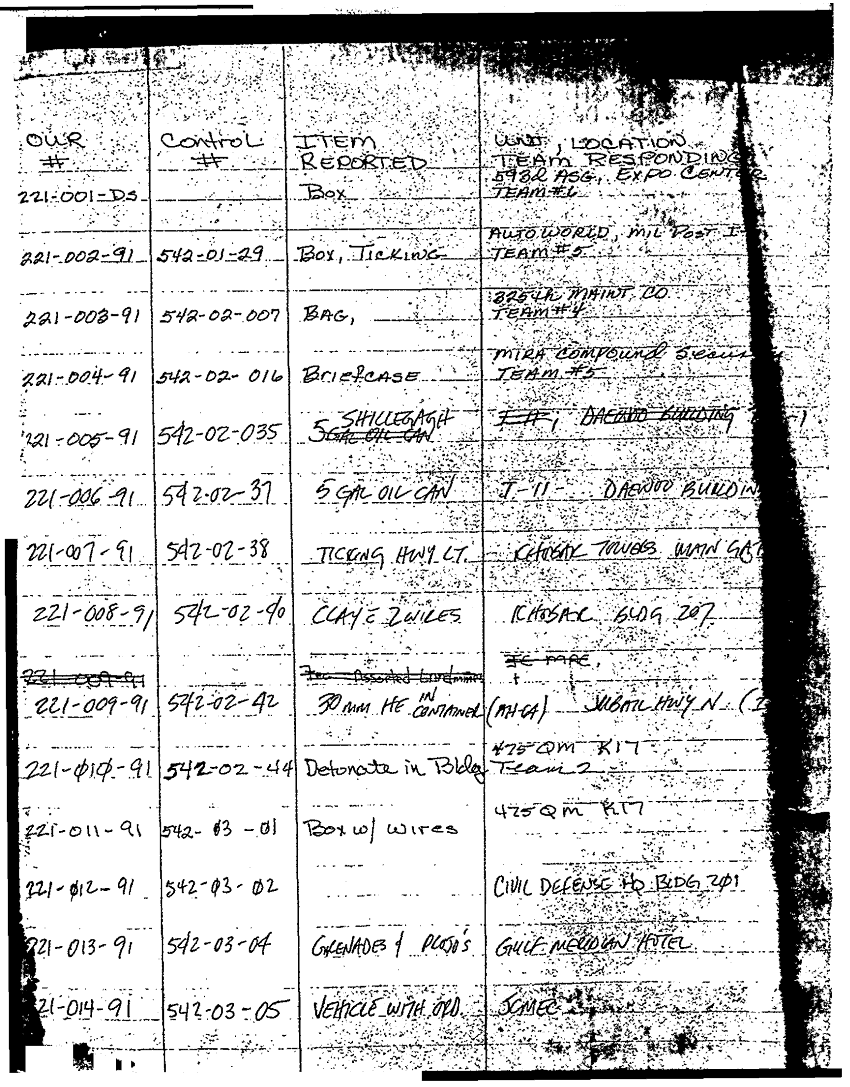 OUR # Control # ITEM REPORTED UNIT, LOCATION TEAM RESPONDING
221-001-DS Box 593d ASG, EXPO CENTER TEAM #6
221-002-91 542-01-29 Box, TICKING AUTOWORLD, MIL POST TEAM #5
221-003-91 542-02-007 BAG, MAINT CO TEAM #4
221-004-91 542-02-016 BriefCASE COMPOUND TEAM #5
221-005-91 542-02-035 SHILLEGAGH 5 GAL OIL CAN DAEWOO BUILDING
221-006-91 542-02-37 5 GAL OIL CAN T-11- DAEWOO BUILDIN
221-007-91 542-02-38 TICKING HWY LT. KHOBAR TOWERS MAIN GAT
221-008-91 542-02-40 KHOBAR BLDG 207
221-009-91 Assorted
221-009-91 542-02-42 30 MM HE IN CONTAINER (AH-64) JUBAIL HWY N.
221-010-91 542-02-44 Detonate in Bldg 475 QM K17 Team 2
221-011-91 542-03-01 Box w/ wires 475 QM K17
221-012-91 542-03-02 CIVIL DEFENSE HQ BLDG 201
221-013-91 542-03-04 GRENADES & GULF MERIDIAN HOTEL
21-014-91 542-03-05 VEHICLE WITH ORD. JCMEC